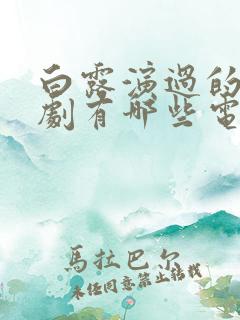 白露演過的
劇有哪些電
馬拉巴尔
未任同意禁止轉載